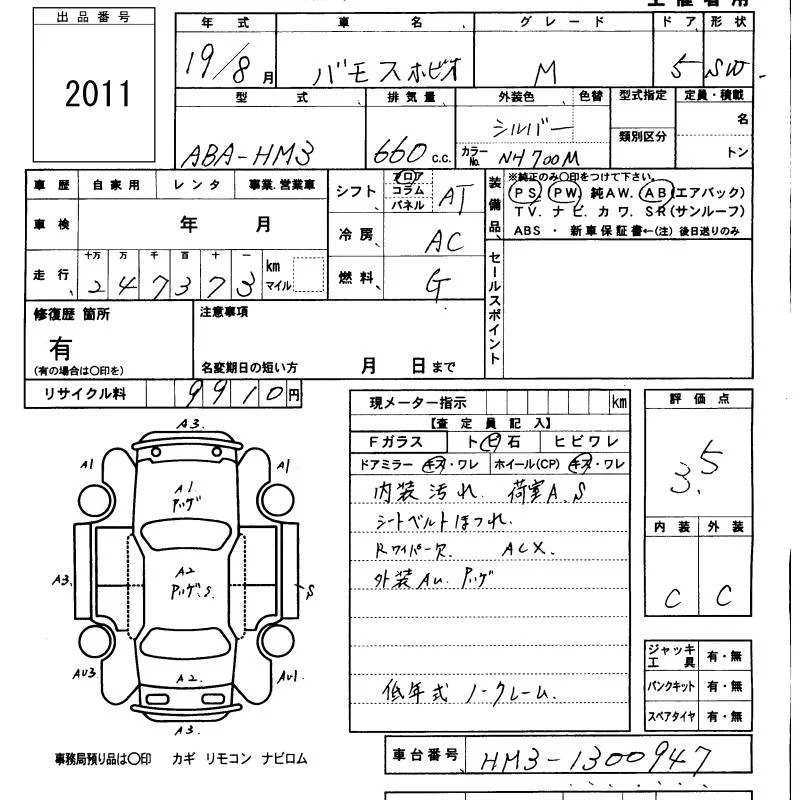 出品番号
2011
年式 車名 グレード ドア 形状
19/8月 バモスホビオ M 5 SW
型式 排気量 外装色 色替 型式指定 定員・積載
ABA-HM3 660 c.c. シルバー 類別区分 名
カラーNo. NH700M トン
車歴 自家用 レンタ 事業.営業車
車検 年 月
走行 十万 万 千 百 十 一 km マイル
2 4 7 3 7 3
シフト フロア コラム パネル AT
冷房 AC
燃料 G
装備品
※純正のみ○印をつけて下さい。
PS PW 純AW. AB(エアバック)
TV. ナビ. カワ. SR(サンルーフ)
ABS ・ 新車保証書←(注) 後日送りのみ
セールスポイント
修復歴 箇所
有
(有の場合は○印を)
注意事項
名変期日の短い方 月 日まで
リサイクル料 9910円
現メーター指示 km
【査定員記入】
Fガラス トビ石 ヒビワレ
ドアミラー キズ・ワレ ホイール(CP) キズ・ワレ
内装汚れ. 荷室A.S
シートベルトほつれ.
Rワイパー欠. ACX.
外装AU. ハゲ
低年式 ノークレーム.
評価点
3.5
内装 外装
C C
ジャッキ工具 有・無
パンクキット 有・無
スペアタイヤ 有・無
A3.
A1 A1
A1
A2
A3. S
AU3 A2. AU1
A3
事務局預り品は○印 カギ リモコン ナビロム
車台番号 HM3-1300947